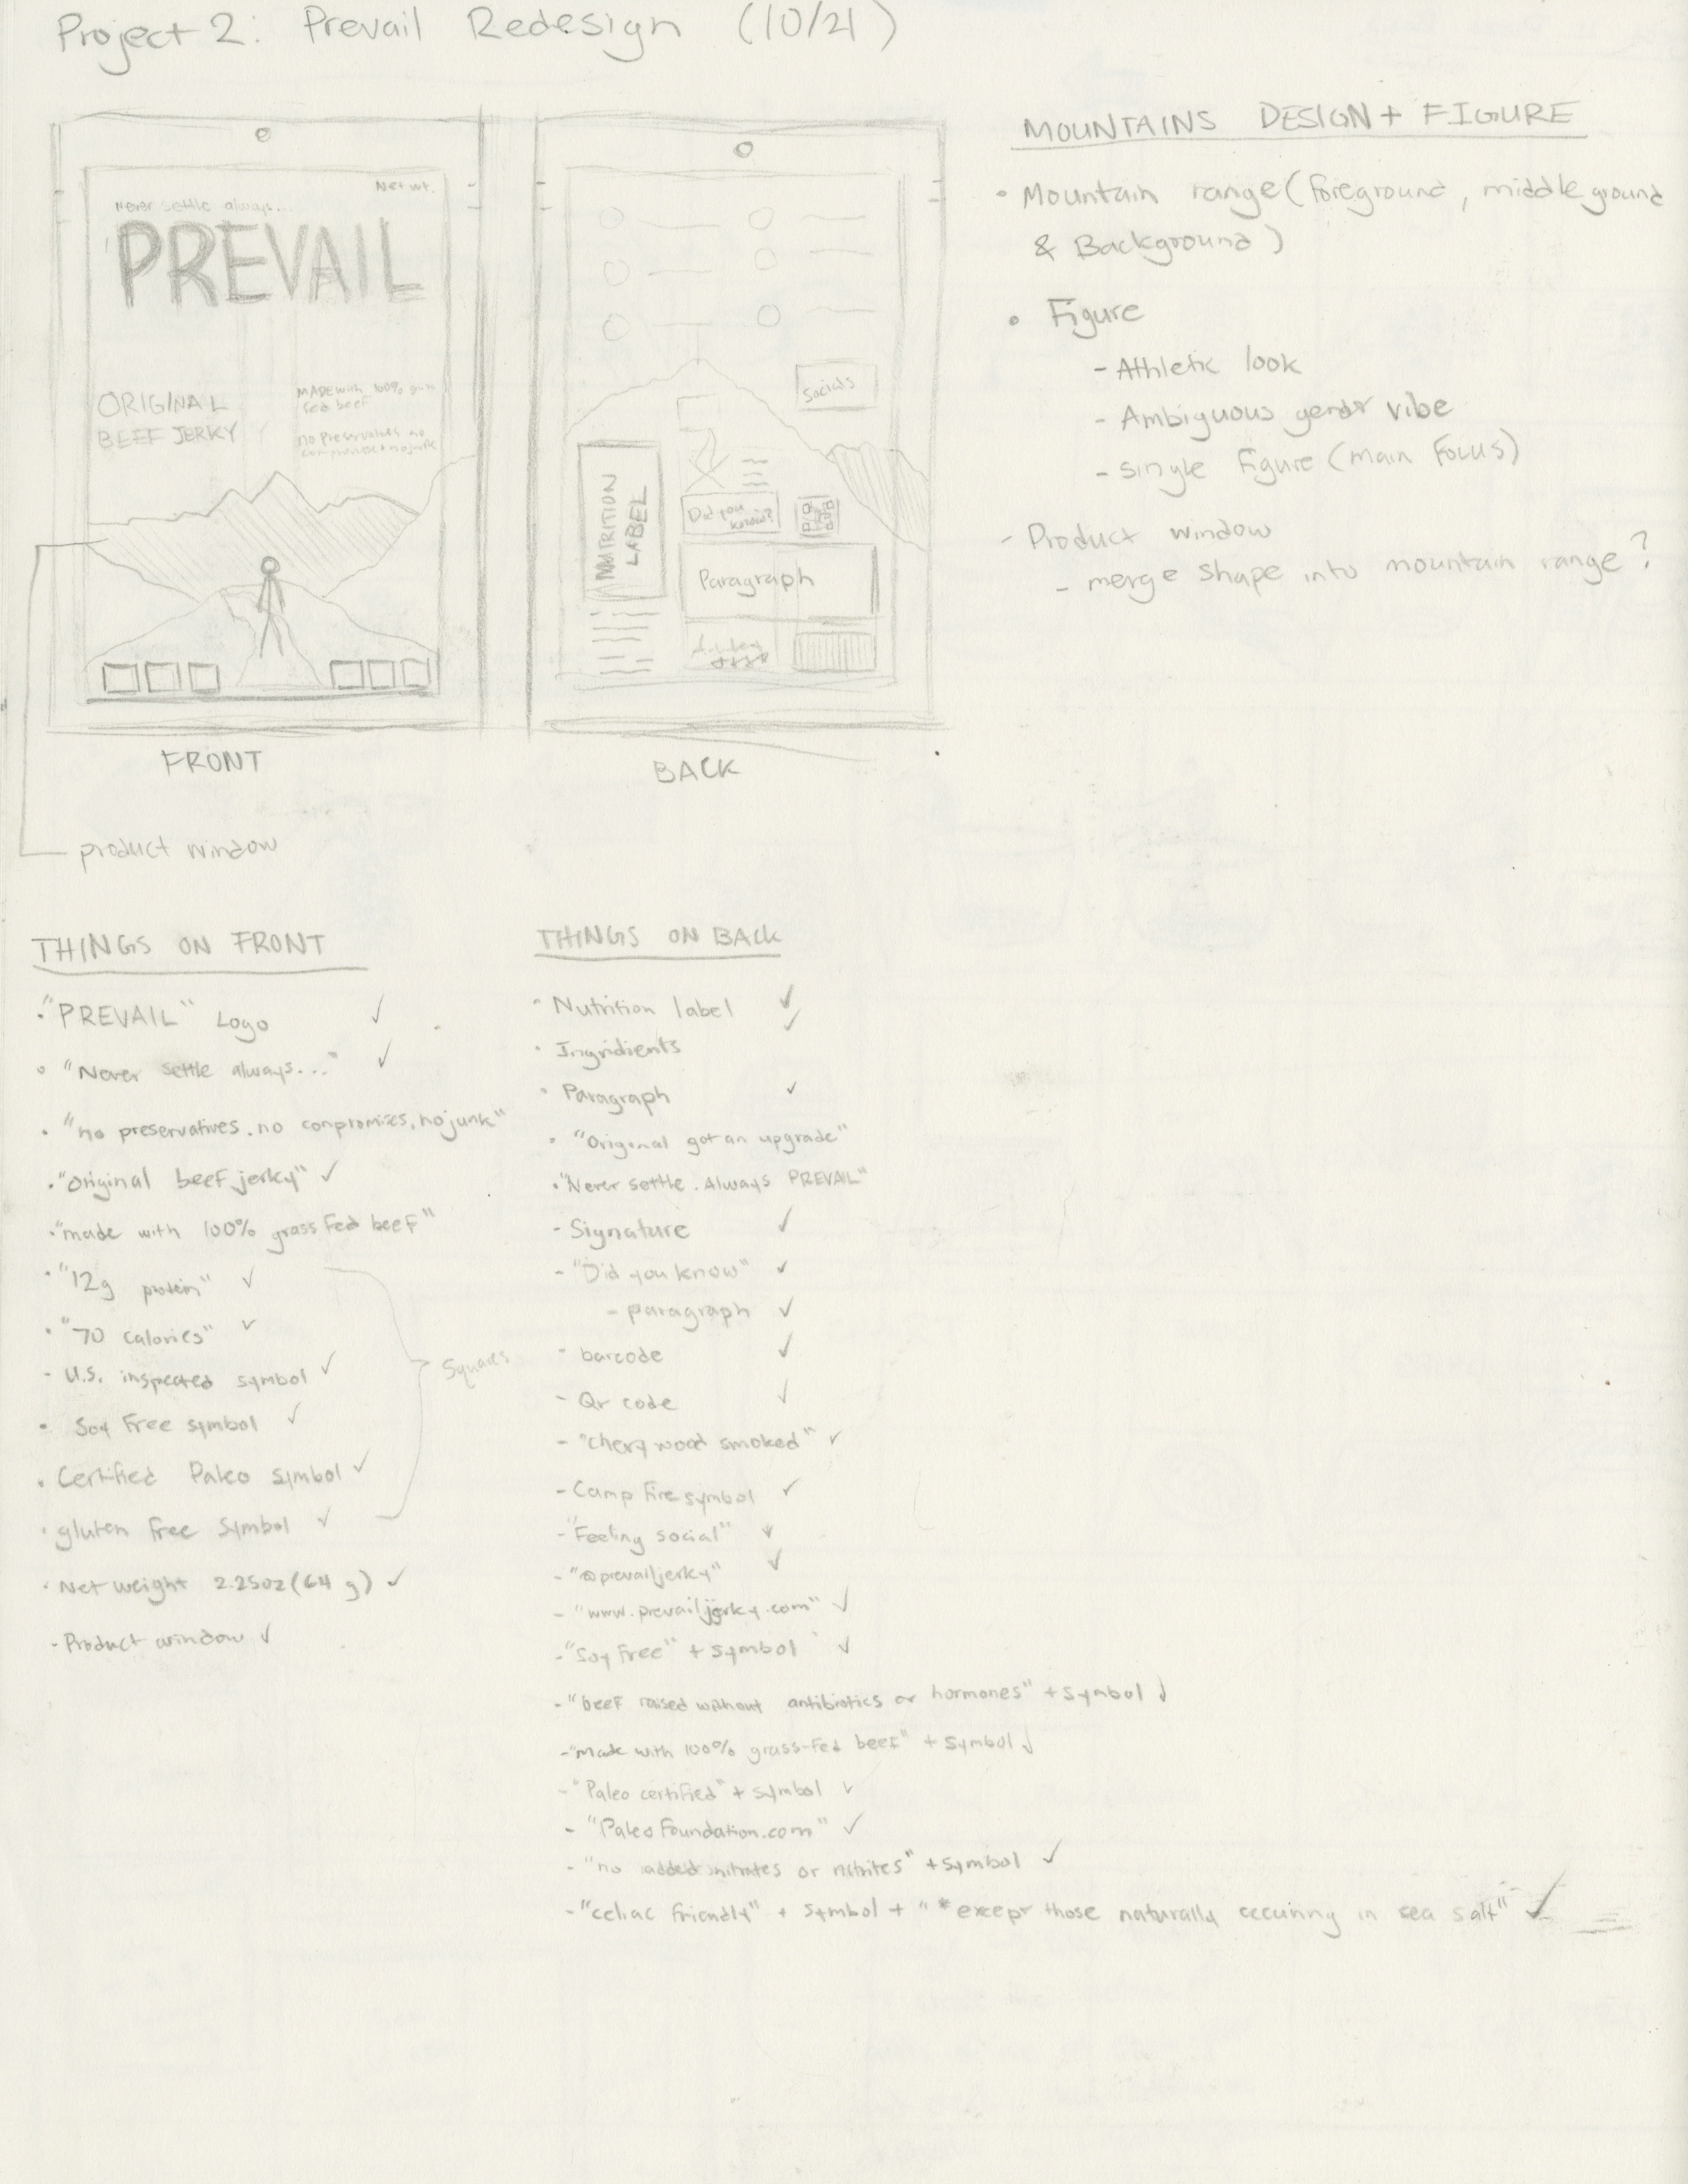 Project 2: Prevail Redesign (10/21)
Net wt.
Never settle always...
PREVAIL
ORIGINAL
BEEF JERKY
MADE with 100%
fed beef
no preservatives no
FRONT
product window
Socials
NUTRITION
LABEL
Did you
know?
Paragraph
BACK
MOUNTAINS DESIGN + FIGURE
• Mountain range (foreground, middle ground
& Background)
• Figure
- Athletic look
- Ambiguous gender vibe
- single figure (main focus)
- Product window
- merge shape into mountain range?
THINGS ON FRONT
• "PREVAIL" Logo ✓
• "Never settle always..." ✓
• "no preservatives. no conpromises, no junk"
• "original beef jerky" ✓
• "made with 100% grass fed beef"
• "12g protein" ✓
• "70 calories" ✓
- U.S. inspected symbol ✓
Squares
• Soy Free symbol ✓
• Certified Paleo symbol ✓
• gluten free symbol ✓
• Net weight 2.25oz (64 g) ✓
- Product window ✓
THINGS ON BACK
• Nutrition label ✓
• Ingridients ✓
• Paragraph ✓
• "Original got an upgrade"
• "Never settle. Always PREVAIL"
- Signature ✓
- "Did you know" ✓
- paragraph ✓
• barcode ✓
- Qr code ✓
- "chery wood smoked" ✓
- Camp fire symbol ✓
- "Feeling social" ✓
- "@prevailjerky" ✓
- "www.prevailjerky.com" ✓
- "Soy free" + symbol ✓
- "beef raised without antibiotics or hormones" + symbol ✓
- "made with 100% grass-fed beef" + symbol ✓
- "Paleo certified" + symbol ✓
- "PaleoFoundation.com" ✓
- "no added nitrates or nitrites" + symbol ✓
- "celiac friendly" + symbol + "*except those naturally occuring in sea salt" ✓